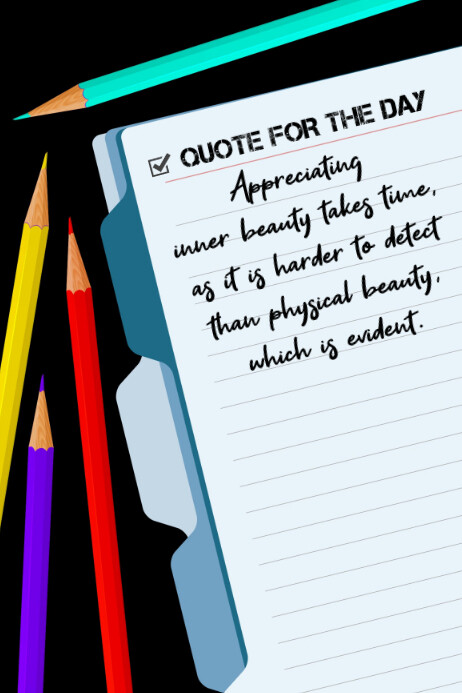 QUOTE FOR THE DAY
Appreciating
inner beauty takes time,
as it is harder to detect
than physical beauty,
which is evident.